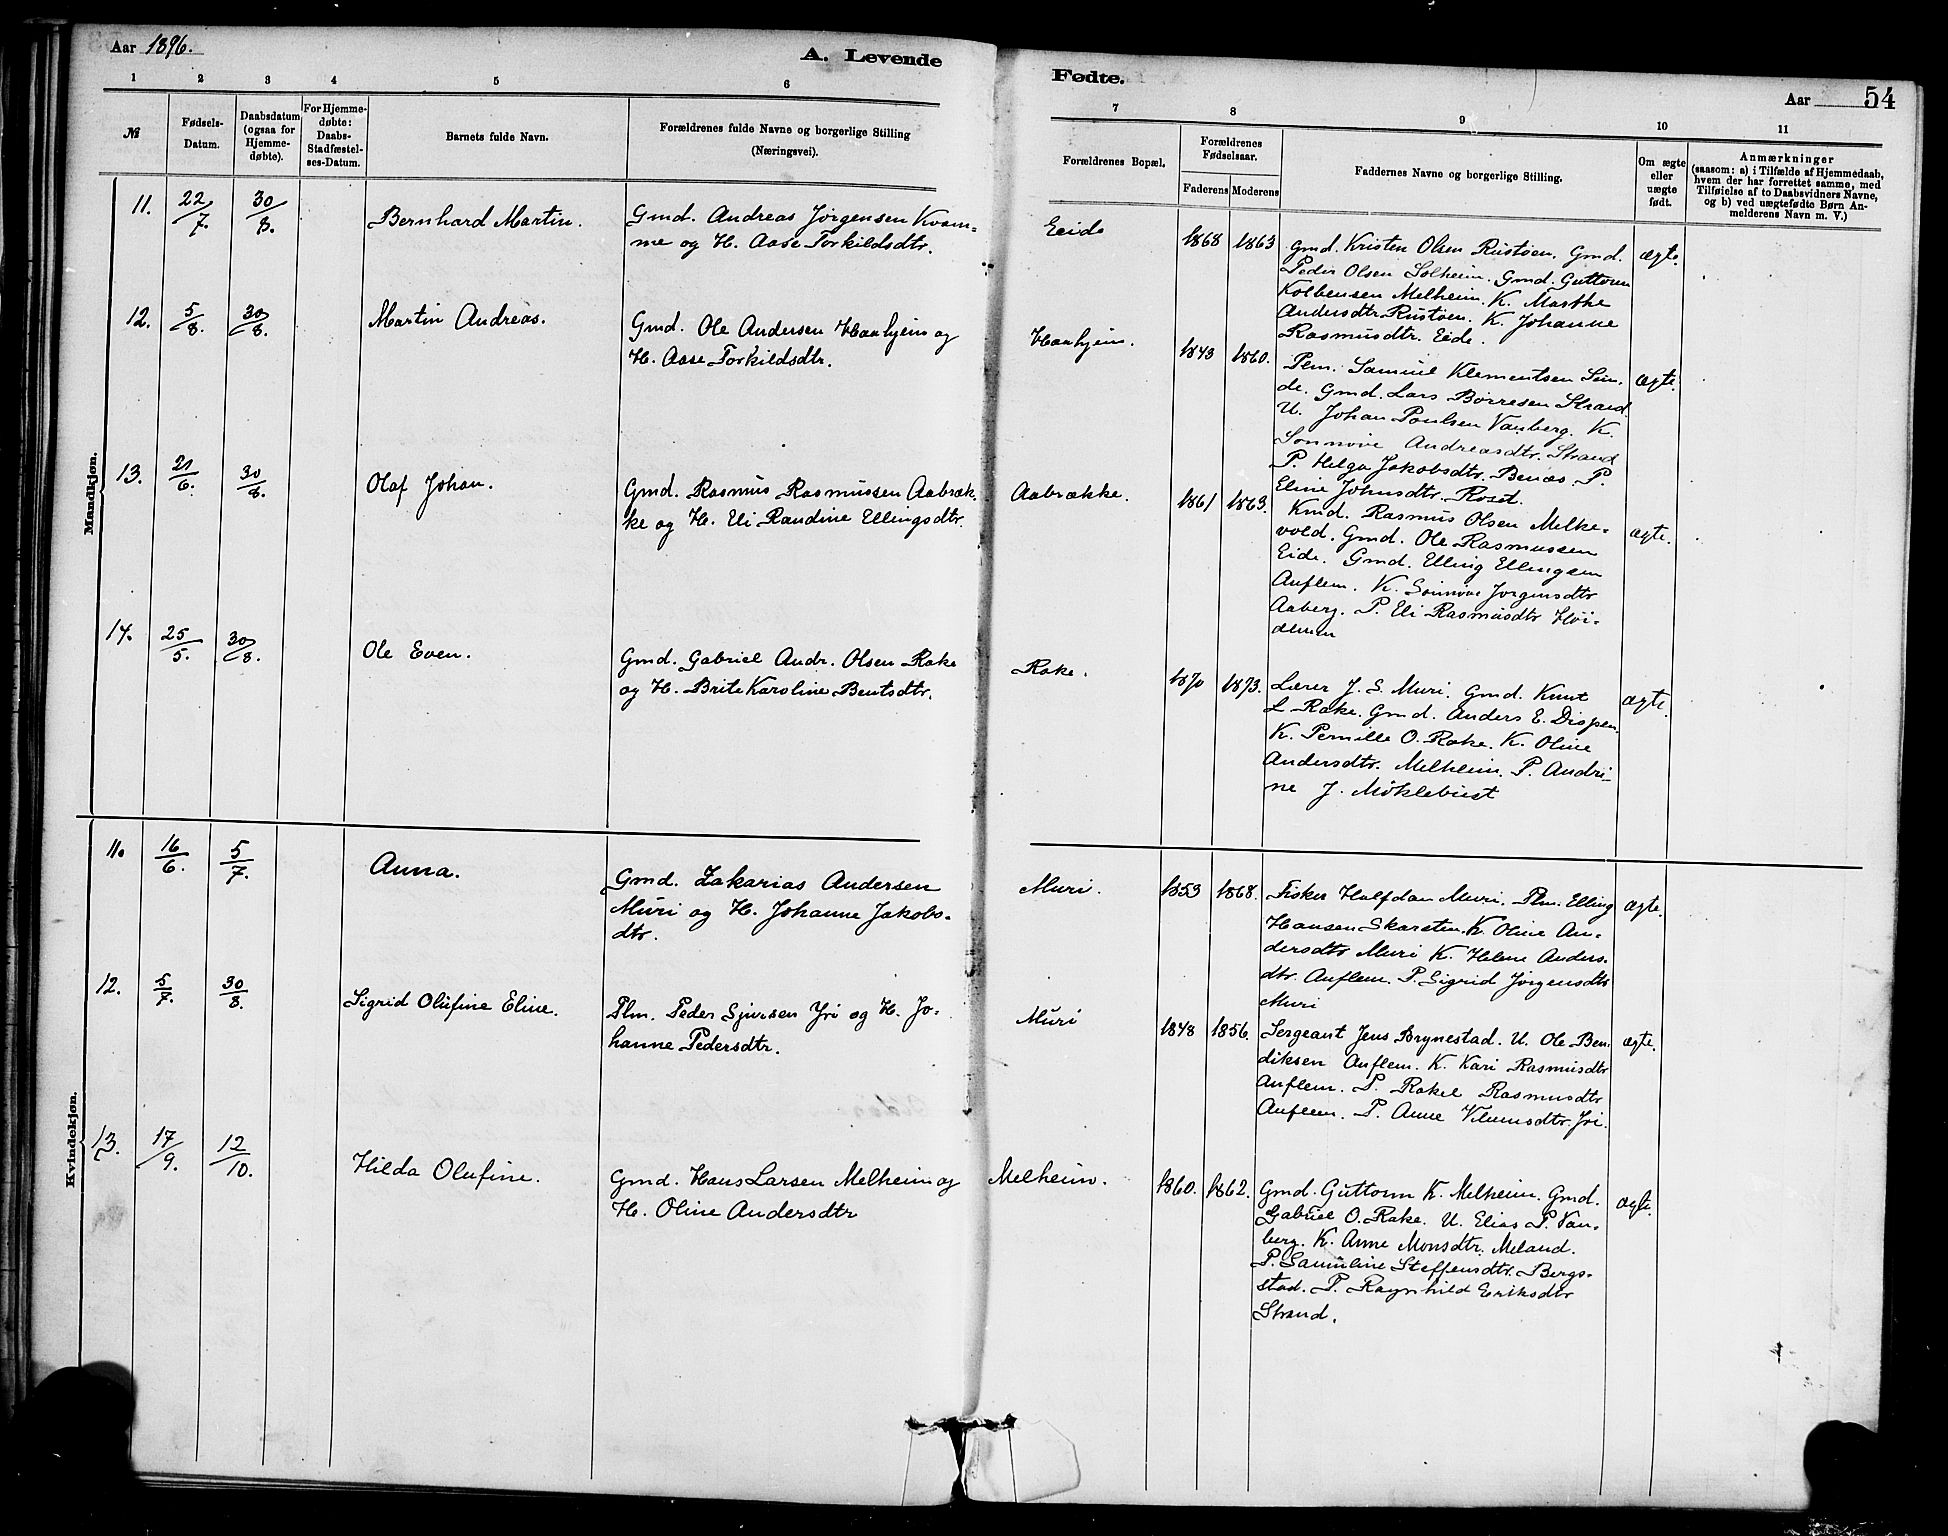 Aar 1896.
A. Levende
Fødte.
Aar
54
1 2 3 4 5 6
7 8 9 10 11
№
Fødsels-
Datum.
Daabsdatum
(ogsaa for
Hjemme-
døbte).
For Hjemme-
døbte:
Daabs-
Stadfæstel-
ses-Datum.
Barnets fulde Navn.
Forældrenes fulde Navne og borgerlige Stilling
(Næringsvei).
Forældrenes Bopæl.
Forældrenes
Fødselsaar.
Faderens Moderens
Faddernes Navne og borgerlige Stilling.
Om ægte
eller
uægte
født.
Anmærkninger
(saasom: a) i Tilfælde af Hjemmedaab,
hvem der har forrettet samme, med
Tilføielse af to Daabsvidners Navne,
og b) ved uægtefødte Børn An-
melderens Navn m. V.)
Mandkjøn.
11. 22/7. 30/8. Bernhard Martin.
Gmd. Andreas Jørgensen Kvam-
me og H. Aase Torkildsdtr.
Eide
1868 1863
Gmd. Kristen Olsen Rustøen. Gmd.
Peder Olsen Solheim. Gmd. Guttorm
Kolbensen Melheim. K. Marthe
Andersdtr. Rustøen. K. Johanne
Rasmusdtr. Eide.
ægte.
12. 5/8. 30/8. Martin Andreas.
Gmd. Ole Andersen Haahjem og
H. Aase Torkildsdtr.
Haahjem.
1843 1860.
Plm. Samuel Klementsen Sin-
de. Gmd. Lars Børresen Strand.
U. Johan Poulsen Vanberg. K.
Sønnøve Andreasdtr. Strand
P. Helga Jakobsdtr. Benæs P.
Eline Johnsdtr. Roset.
ægte.
13. 21/6. 30/8. Olaf Johan.
Gmd. Rasmus Rasmussen Aabræk-
ke og H. Eli Randine Ellingsdtr.
Aabrække.
1861 1863.
Kmd. Rasmus Olsen Melke-
vold. Gmd. Ole Rasmussen
Eide. Gmd. Elling Ellingsen
Auflem. K. Sønnøve Jørgensdtr
Aaberg. P. Eli Rasmusdtr Høi-
ægte.
14. 25/5. 30/8. Ole Even.
Gmd. Gabriel Andr. Olsen Rake
og H. Brite Karoline Bentsdtr.
Rake.
1870 1873.
Lærer J. S. Muri. Gmd. Knut
L Rake. Gmd. Anders E. Dispen.
K. Pernille O. Rake. K. Oline
Andersdtr. Melheim. P. Andri-
ne J. Møklebust
ægte.
Kvindekjøn.
11. 16/6. 5/7. Anna.
Gmd. Zakarias Andersen
Muri og H. Johanne Jakobs-
dtr.
Muri.
1853 1868.
Fisker Halfdan Muri. Plm. Elling
Hansen Skarsten. K. Oline An-
dersdtr Muri K. Helene Anders-
dtr. Auflem. P. Sigrid Jørgensdtr
Muri
ægte.
12. 5/7. 30/8. Sigrid Olufine Eline.
Plm. Peder Sjursen Yri og H. Jo-
hanne Pedersdtr.
Muri
1848 1856.
Sergeant Jens Brynestad. U. Ole Ben-
diksen Auflem. K. Kari Rasmusdtr
Auflem. P. Rakel Rasmusdtr
Auflem. P. Anne Vilumsdtr. Yri.
ægte.
13. 17/9. 12/10. Hilda Olufine.
Gmd. Hans Larsen Melheim og
H. Oline Andersdtr
Melheim.
1860. 1862.
Gmd. Guttorm K. Melheim. Gmd.
Gabriel O. Rake. U. Elias P. Van-
berg. K. Anne Monsdtr. Meland.
P. Samuline Steffensdtr. Bergs-
stad. P. Ragnhild Eriksdtr
Strand.
ægte.